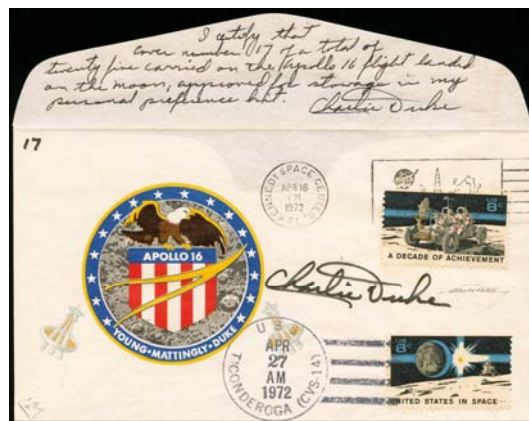 I certify that
cover number 17 of a total of
twenty five carried on the Apollo 16 flight landed
on the moon, approved for stowage in my
personal preference kit. Charlie Duke
17
KENNEDY SPACE CENTER
APR 16
PM
1972
FL
US 8c
A DECADE OF ACHIEVEMENT
APOLLO 16
YOUNG • MATTINGLY • DUKE
Charlie Duke
U.S.S.
APR
27
AM
1972
TICONDEROGA (CVS-14)
US 8c
UNITED STATES IN SPACE...